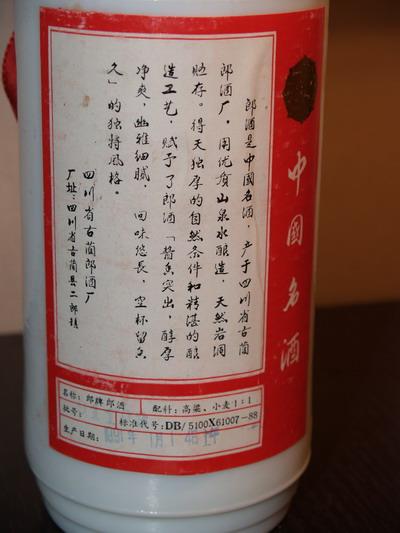 中國名酒
郎酒是中國名酒，产于四川省古蔺
郎酒厂，用优质山泉水酿造，天然岩洞
贮存。得天独厚的自然条件和精湛的酿
造工艺，赋予了郎酒「酱香突出，醇厚
净爽，幽雅细腻，回味悠長，空杯留香
久」的独特风格。
四川省古蔺郎酒厂
厂址：四川省古蔺县二郎镇
名称：郎牌郎酒
配料：高粱、小麦1：1
批号：
标准代号：DB/5100X61007-88
生产日期：